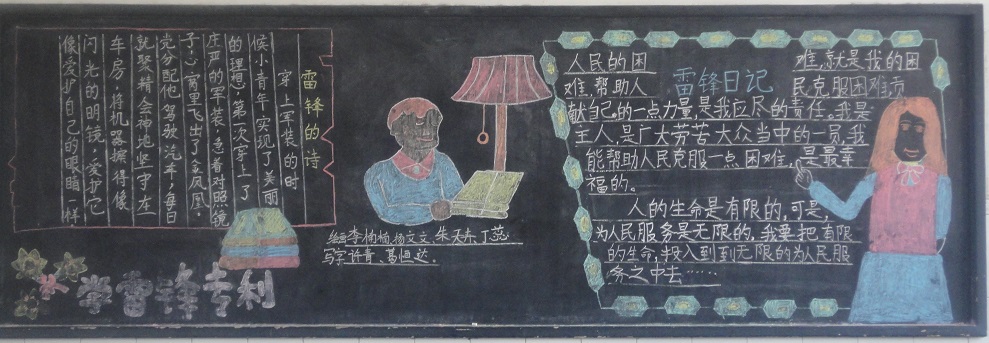 雷锋的诗
穿上军装的时
候小青年实现了美丽
的理想,第一次穿上了
庄严的军装,急着对照镜
子,心窝里飞出了金凤凰,
党分配他驾驶汽车,每日
就聚精会神地坚守在
车房,将机器擦得像
闪光的明镜,爱护它
像爱护自己的眼睛一样,
学雷锋专利
绘画:李楠楠,杨文文,朱天东,丁蕊
写字:许青,葛恒达.
雷锋日记
人民的困难,就是我的困
难,帮助人民克服困难,贡
献自己的一点力量,是我应尽的责任。我是
主人,是广大劳苦大众当中的一员,我
能帮助人民克服一点困难,是最幸
福的。
人的生命是有限的,可是,
为人民服务是无限的,我要把有限
的生命,投入到到无限的为人民服
务之中去……